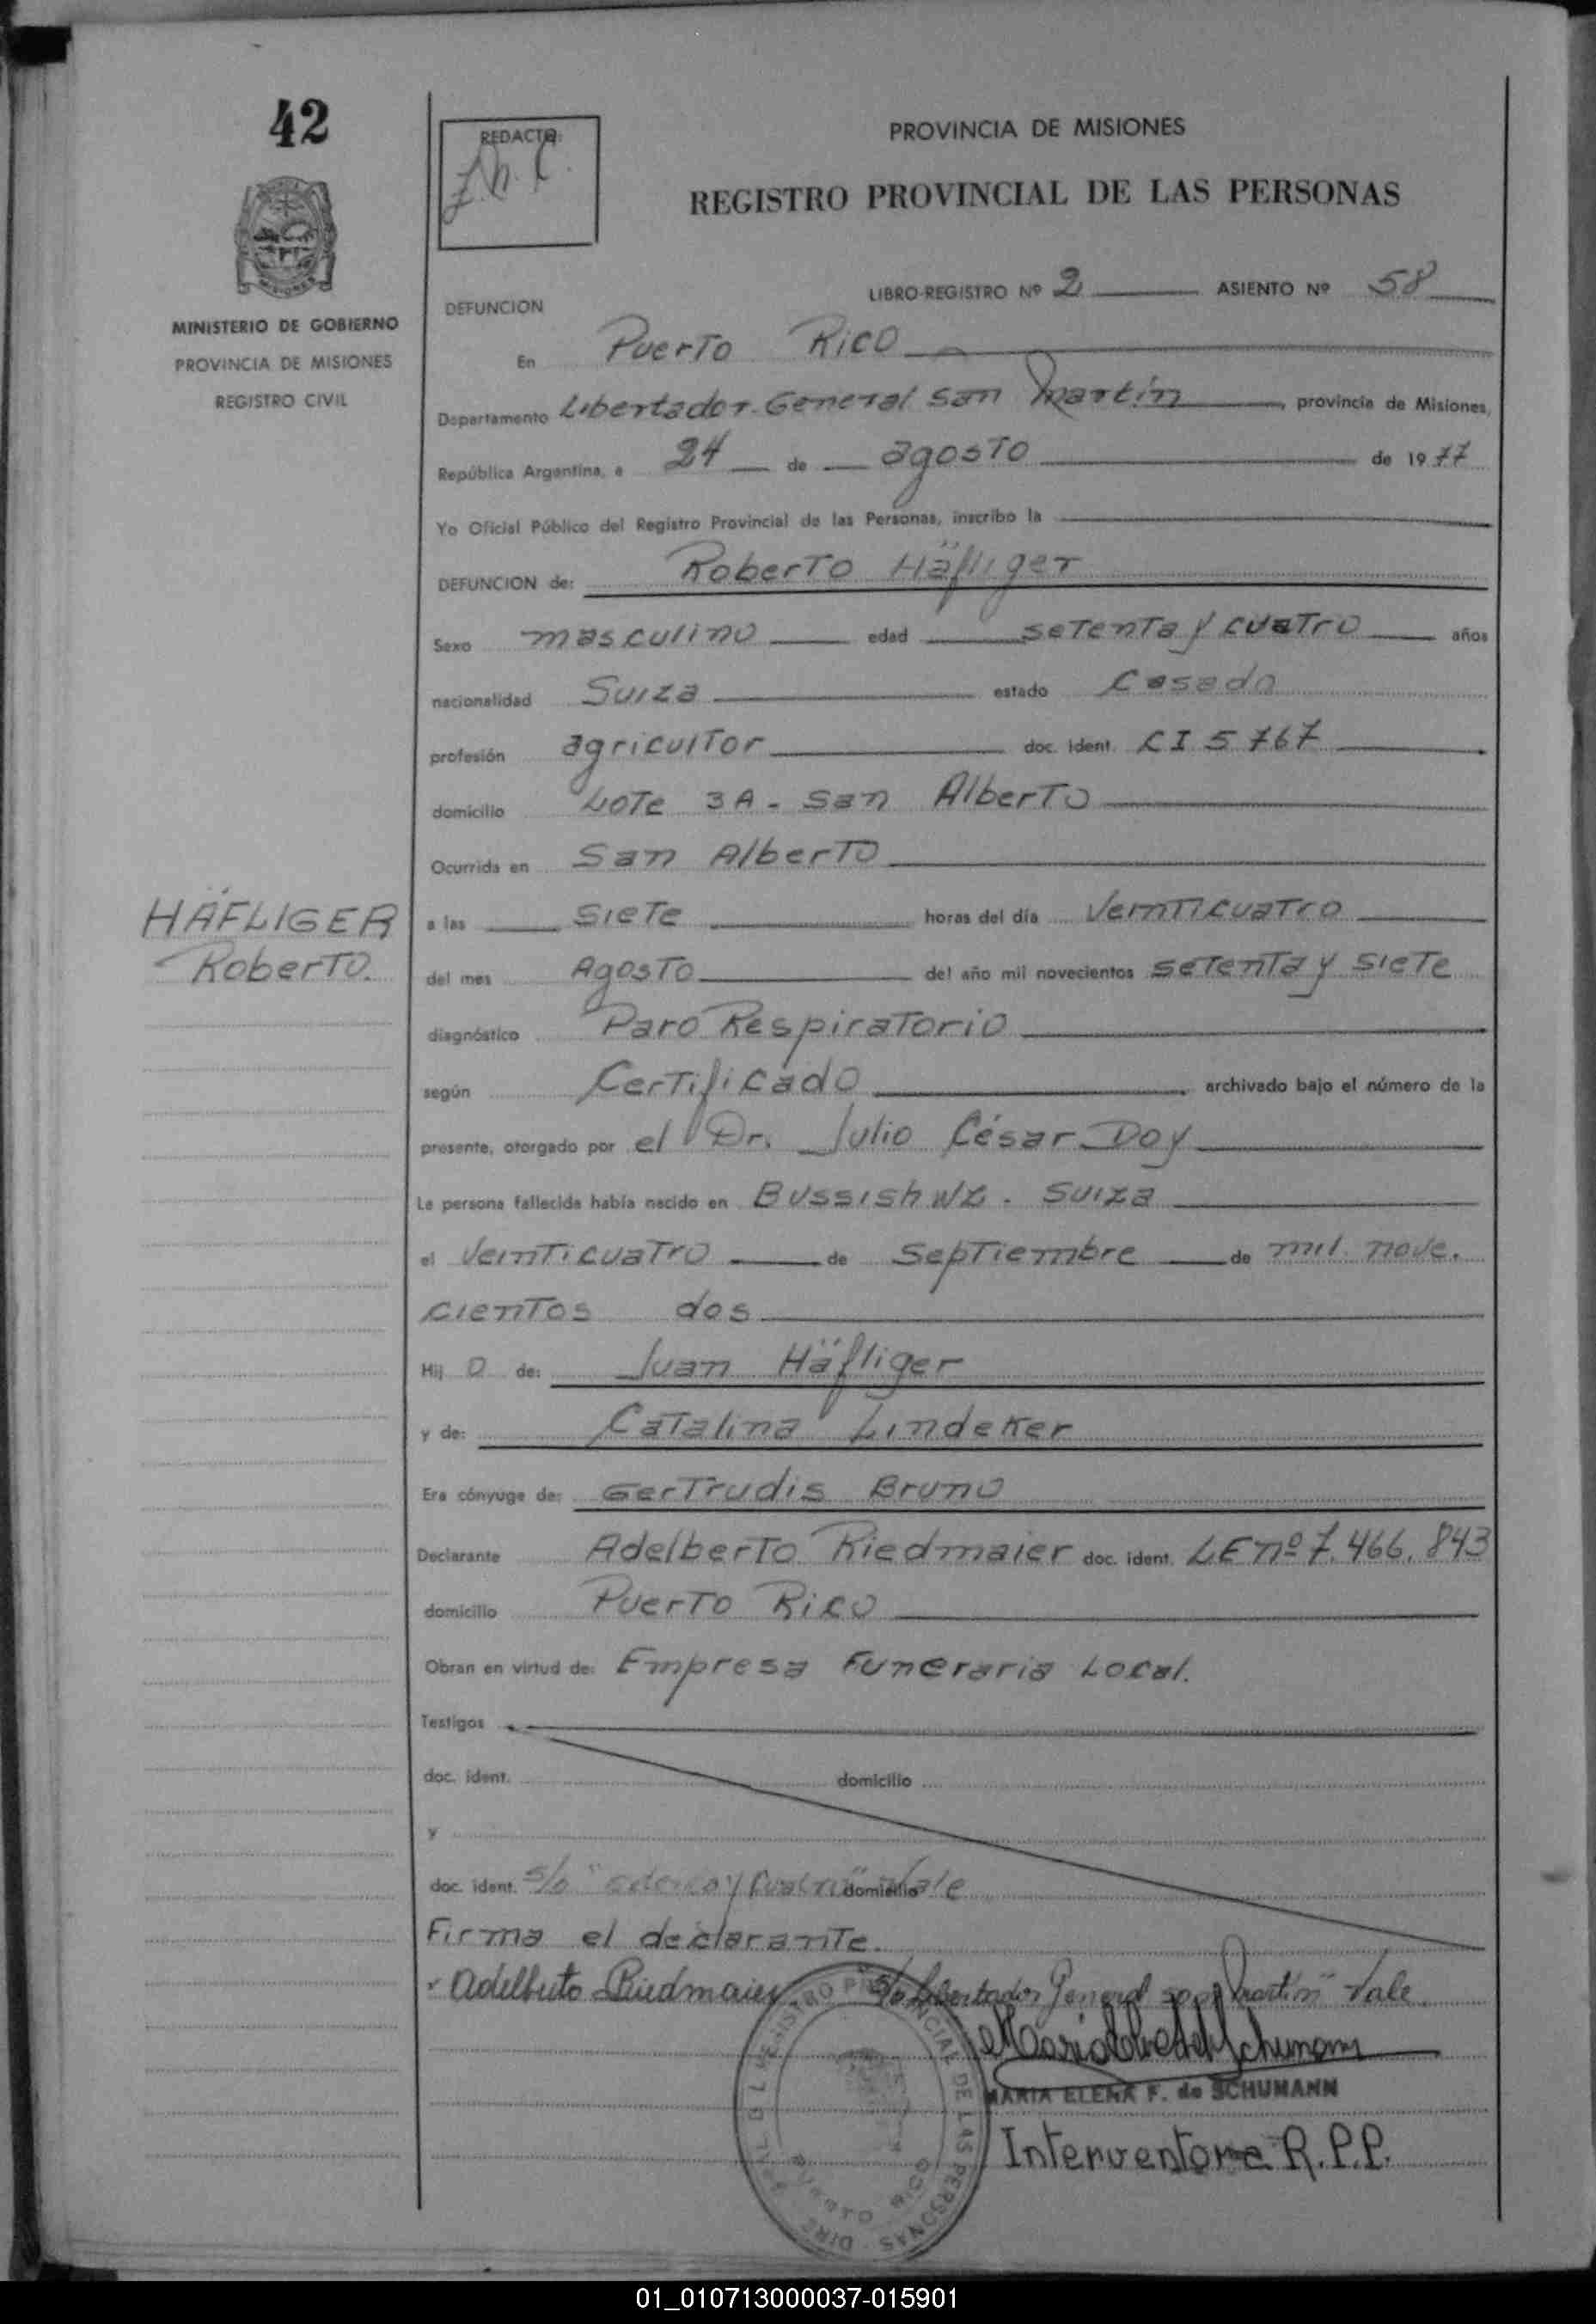 42
REDACTO:
PROVINCIA DE MISIONES
REGISTRO PROVINCIAL DE LAS PERSONAS
MISIONES
MINISTERIO DE GOBIERNO
PROVINCIA DE MISIONES
REGISTRO CIVIL
LIBRO-REGISTRO Nº 2 ASIENTO Nº 58
DEFUNCION
En Puerto Rico
Departamento Libertador General San Martín, provincia de Misiones,
República Argentina, a 24 de agosto de 1977
Yo Oficial Público del Registro Provincial de las Personas, inscribo la
DEFUNCION de: Roberto Häfliger
Sexo masculino edad setenta y cuatro años
nacionalidad Suiza estado Casado
profesión agricultor doc. ident. CI 5767
domicilio Lote 3A - San Alberto
Ocurrida en San Alberto
HÄFLIGER
Roberto.
a las siete horas del día Veinticuatro
del mes Agosto del año mil novecientos setenta y siete
diagnóstico Paro Respiratorio
según Certificado archivado bajo el número de la
presente, otorgado por el Dr. Julio César Doy
La persona fallecida había nacido en Bussish WL. Suiza
el Veinticuatro de Septiembre de mil nove.
cientos dos
Hij o de: Juan Häfliger
y de: Catalina Lindeker
Era cónyuge de: Gertrudis Bruno
Declarante Adelberto Riedmaier doc. ident. LE nº 7.466.843
domicilio Puerto Rico
Obran en virtud de: Empresa Funeraria Local.
Testigos
doc. ident. domicilio
y
doc. ident. S/o " y cuatro" domicilio Vale
Firma el declarante.
Adelberto Riedmaier S/o "Libertador General San Martín" Vale.
MARIA ELENA F. de SCHUMANN
Interventora R.P.P.
REGISTRO PROVINCIAL DE LAS PERSONAS
PUERTO RICO
01_010713000037-015901